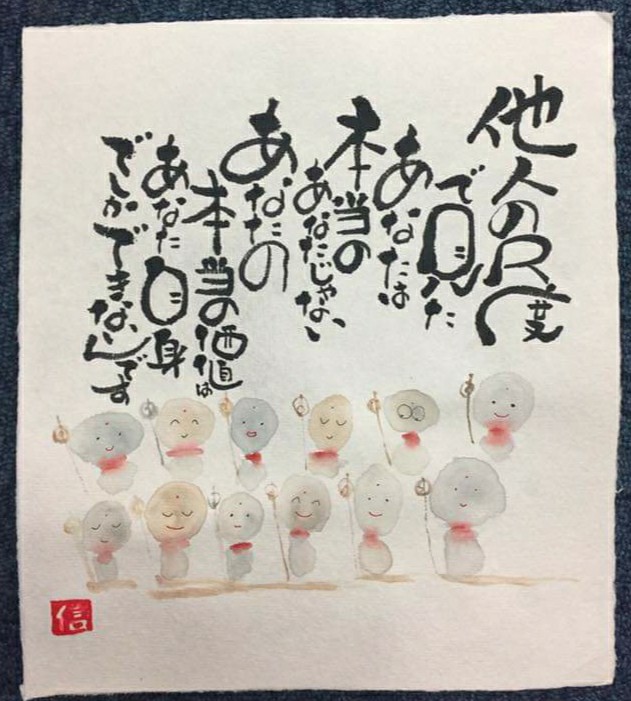 他人の尺度
で見た
あなたは
本当の
あなたじゃない
あなたの
本当の価値は
あなた自身
でしかできないんです
信